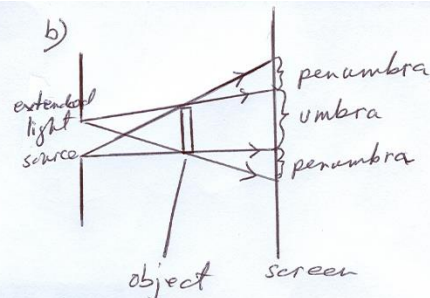 b)
extended
light
source
penumbra
umbra
penumbra
object
screen